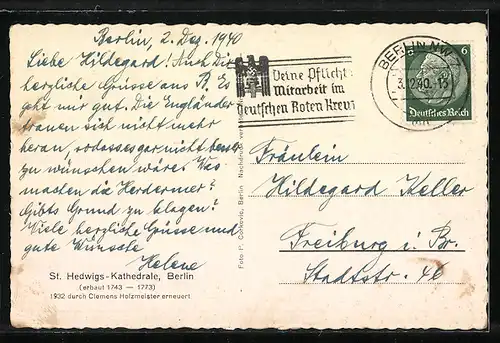 Berlin, 2. Dez. 1940
Liebe Hildegard! Auch Dir
herzliche Grüsse aus B. Es
geht mir gut. Die Engländer
trauen sich nicht mehr
heran, sodass es gar nicht besser
zu wünschen wäre. Was
machen die Herdermer?
Gibts Grund zu klagen?
Viele herzliche Grüsse und
gute Wünsche
Helene
St. Hedwigs-Kathedrale, Berlin
(erbaut 1743 — 1773)
1932 durch Clemens Holzmeister erneuert
Deine Pflicht:
Mitarbeit im
Deutschen Roten Kreuz
BERLIN NW 7
3.12.40.-18
6
Deutsches Reich
Fräulein
Hildegard Keller
Freiburg i. Br.
Stadtstr. 46